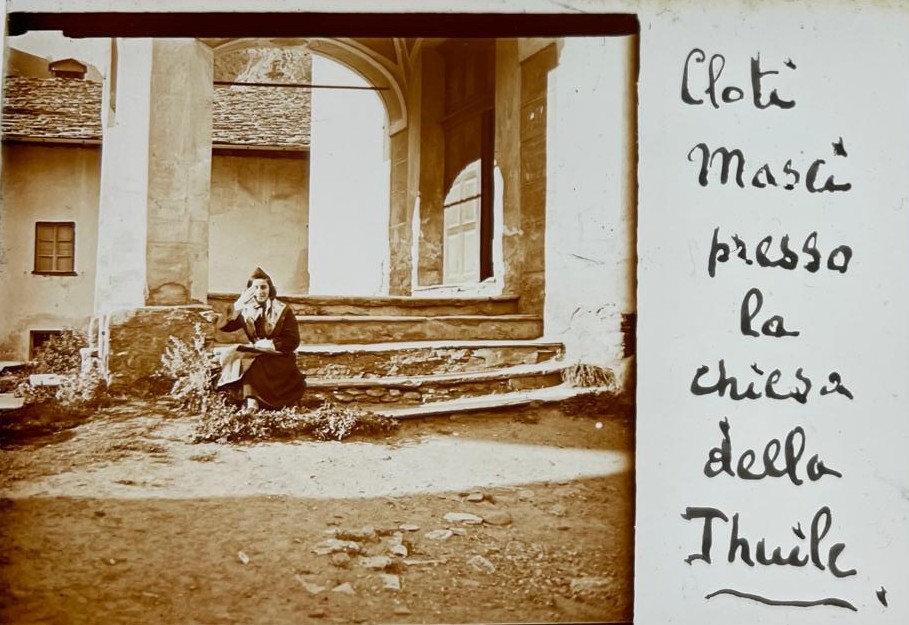 Cloti
Masci
presso
la
chiesa
della
Thuile